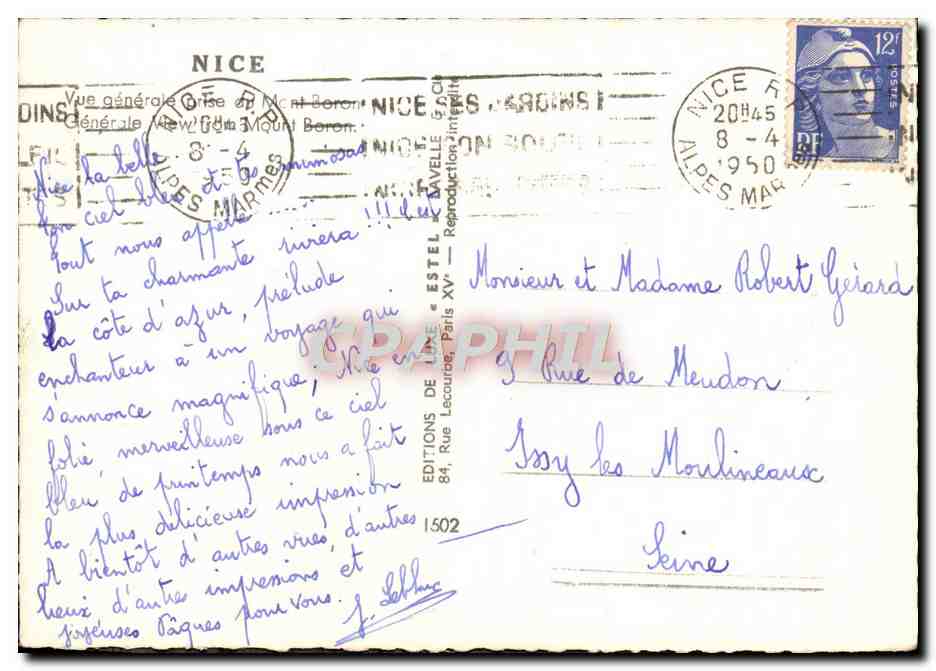 NICE
Vue générale prise du Mont Boron
Générale View from Mount Boron.
NICE R.P.
20H45
8 - 4
1950
ALPES MARmes
NICE SES JARDINS !
NICE SON SOLEIL
NICE
DINS !
NICE R.P.
20H45
8 - 4
1950
ALPES MAR
12F
POSTES
RF
Nice la belle
Ton ciel bleu et tes mimosas
Tout nous appelle .....
Sur ta charmante riviera !!! C'est
la côte d'azur, prélude
enchanteur à un voyage qui
s'annonce magnifique, Nice en
folie, merveilleuse sous ce ciel
bleu de printemps nous a fait
la plus délicieuse impression
A bientôt d'autres vues, d'autres
lieux d'autres impressions et
joyeuses Pâques pour vous.
J. Leblanc
EDITIONS DE LUXE « ESTEL » LAVELLE & Cie
84, Rue Lecourbe, Paris XVe — Reproduction interdite
1502
Monsieur et Madame Robert Gérard
9 Rue de Meudon
Issy les Moulineaux
Seine
CPAPHIL